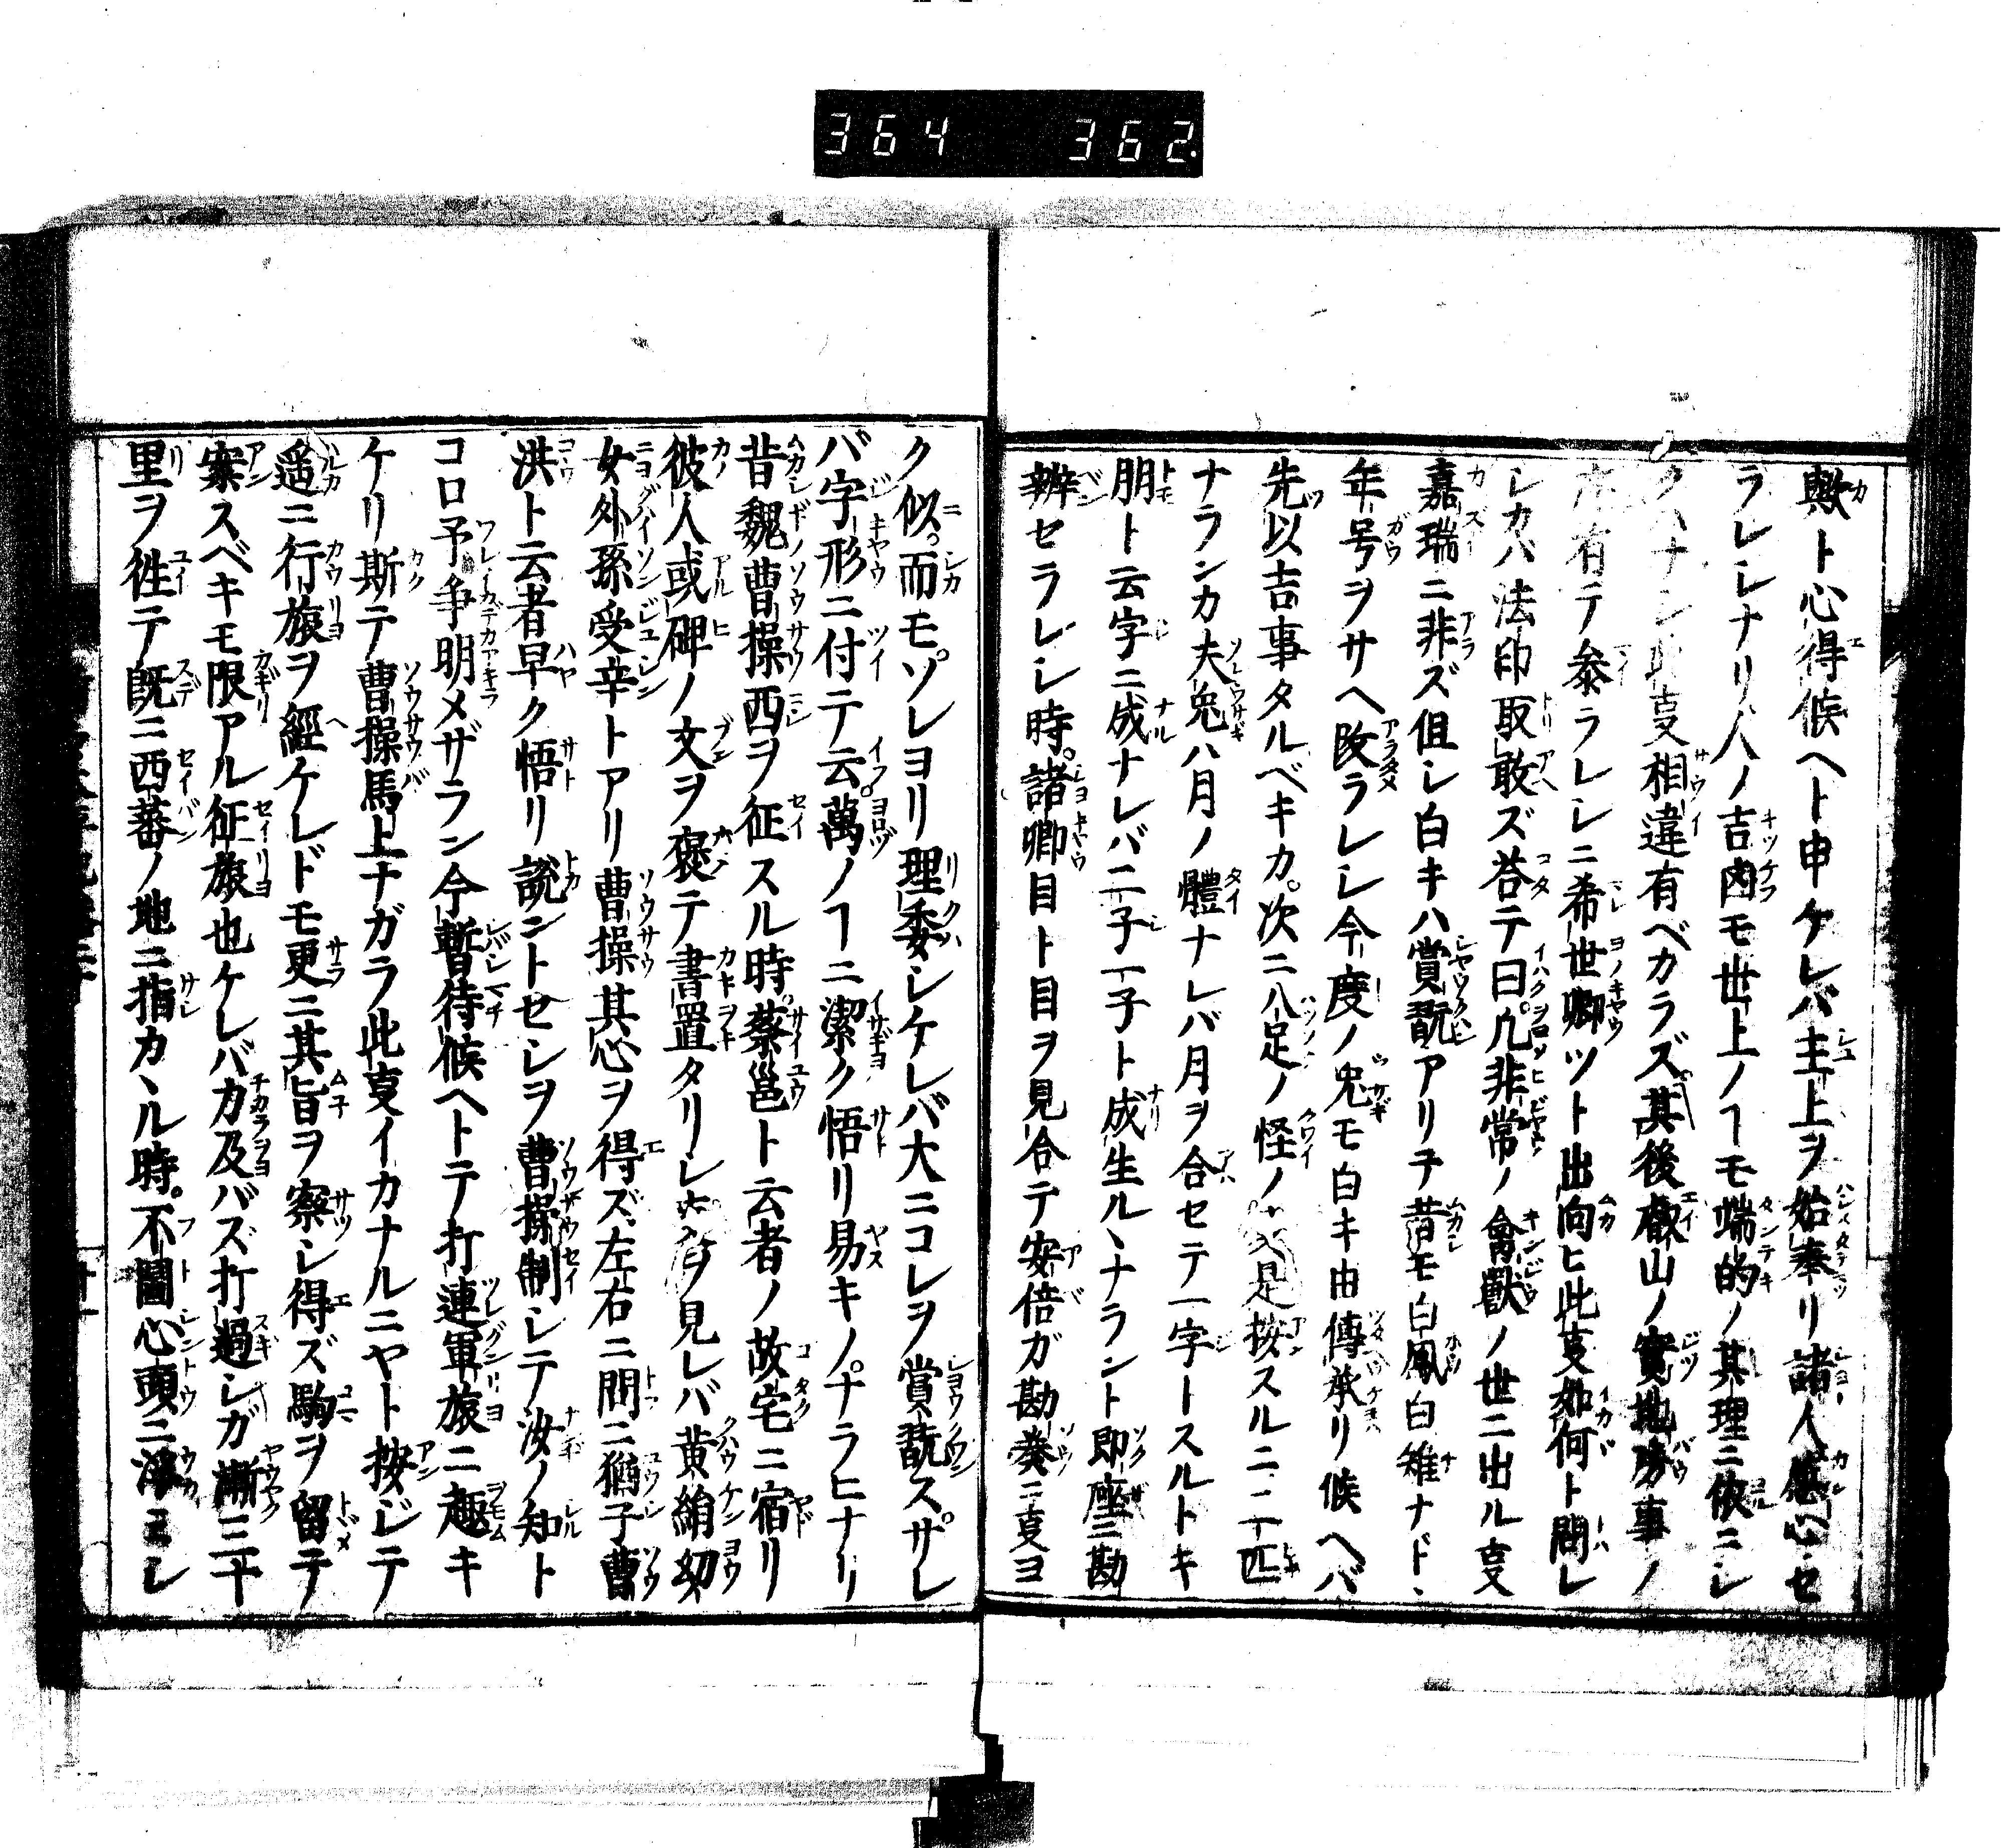 364 362
歟ト心得候ヘト申ケレバ主上ヲ始奉リ諸人感心セ
ラレシナリ人ノ吉凶モ世上ノヿモ端的ノ其理ニ依ニシ
クハナシ此叓相違有ベカラズ其後叡山ノ實地坊事ノ
有テ參ラレシニ希世卿ツト出向ヒ此叓如何ト問レ
シカバ法印取敢ズ荅テ曰凡非常ノ禽獸ノ世ニ出ル叓
嘉瑞ニ非ズ但シ白キハ賞翫アリ
昔モ白鳳白雉ナド、
年号ヲサヘ改ラレシ今度ノ兎モ白キ由傳承リ候ヘバ
先以吉事タルベキカ次ニ八足ノ怪ノ
是按スルニ二匹
ナランカ夫兎ハ月ノ體ナレバ月ヲ合セテ一字トスルトキ
朋ト云字ニ成ナレバ二子一子ト成生ル、ナラント即座ニ勘
辨セラレシ時諸卿目ト目ヲ見合テ安倍ガ勘奏ニ叓ヨ
ク似而モソレヨリ理委シケレバ大ニコレヲ賞翫スサレ
バ字形ニ付テ云萬ノヿニ潔ク悟リ易キノナラヒナリ
昔魏曹操西ヲ征スル時蔡邕ト云者ノ故宅ニ宿リ
彼人或碑ノ文ヲ褒テ書置タリシ
ヲ見レバ黄絹幼
女外孫受辛トアリ曹操其心ヲ得ズ左右ニ問ニ猶子曹
洪ト云者早ク悟リ説ントセシヲ曹操制シテ汝ノ知ト
コロ予争明メザラン今暫待候ヘトテ打連軍旅ニ趣キ
ケリ斯テ曹操馬上ナガラ此叓イカナルニヤト按ジテ
遥ニ行旅ヲ經ケレドモ更ニ其旨ヲ察シ得ズ駒ヲ留テ
案スベキモ限アル征旅也ケレバ力及バズ打過シガ漸三十
里ヲ徃テ既ニ西蕃ノ地ニ指カヽル時不圖心頭ニ浮ミシ